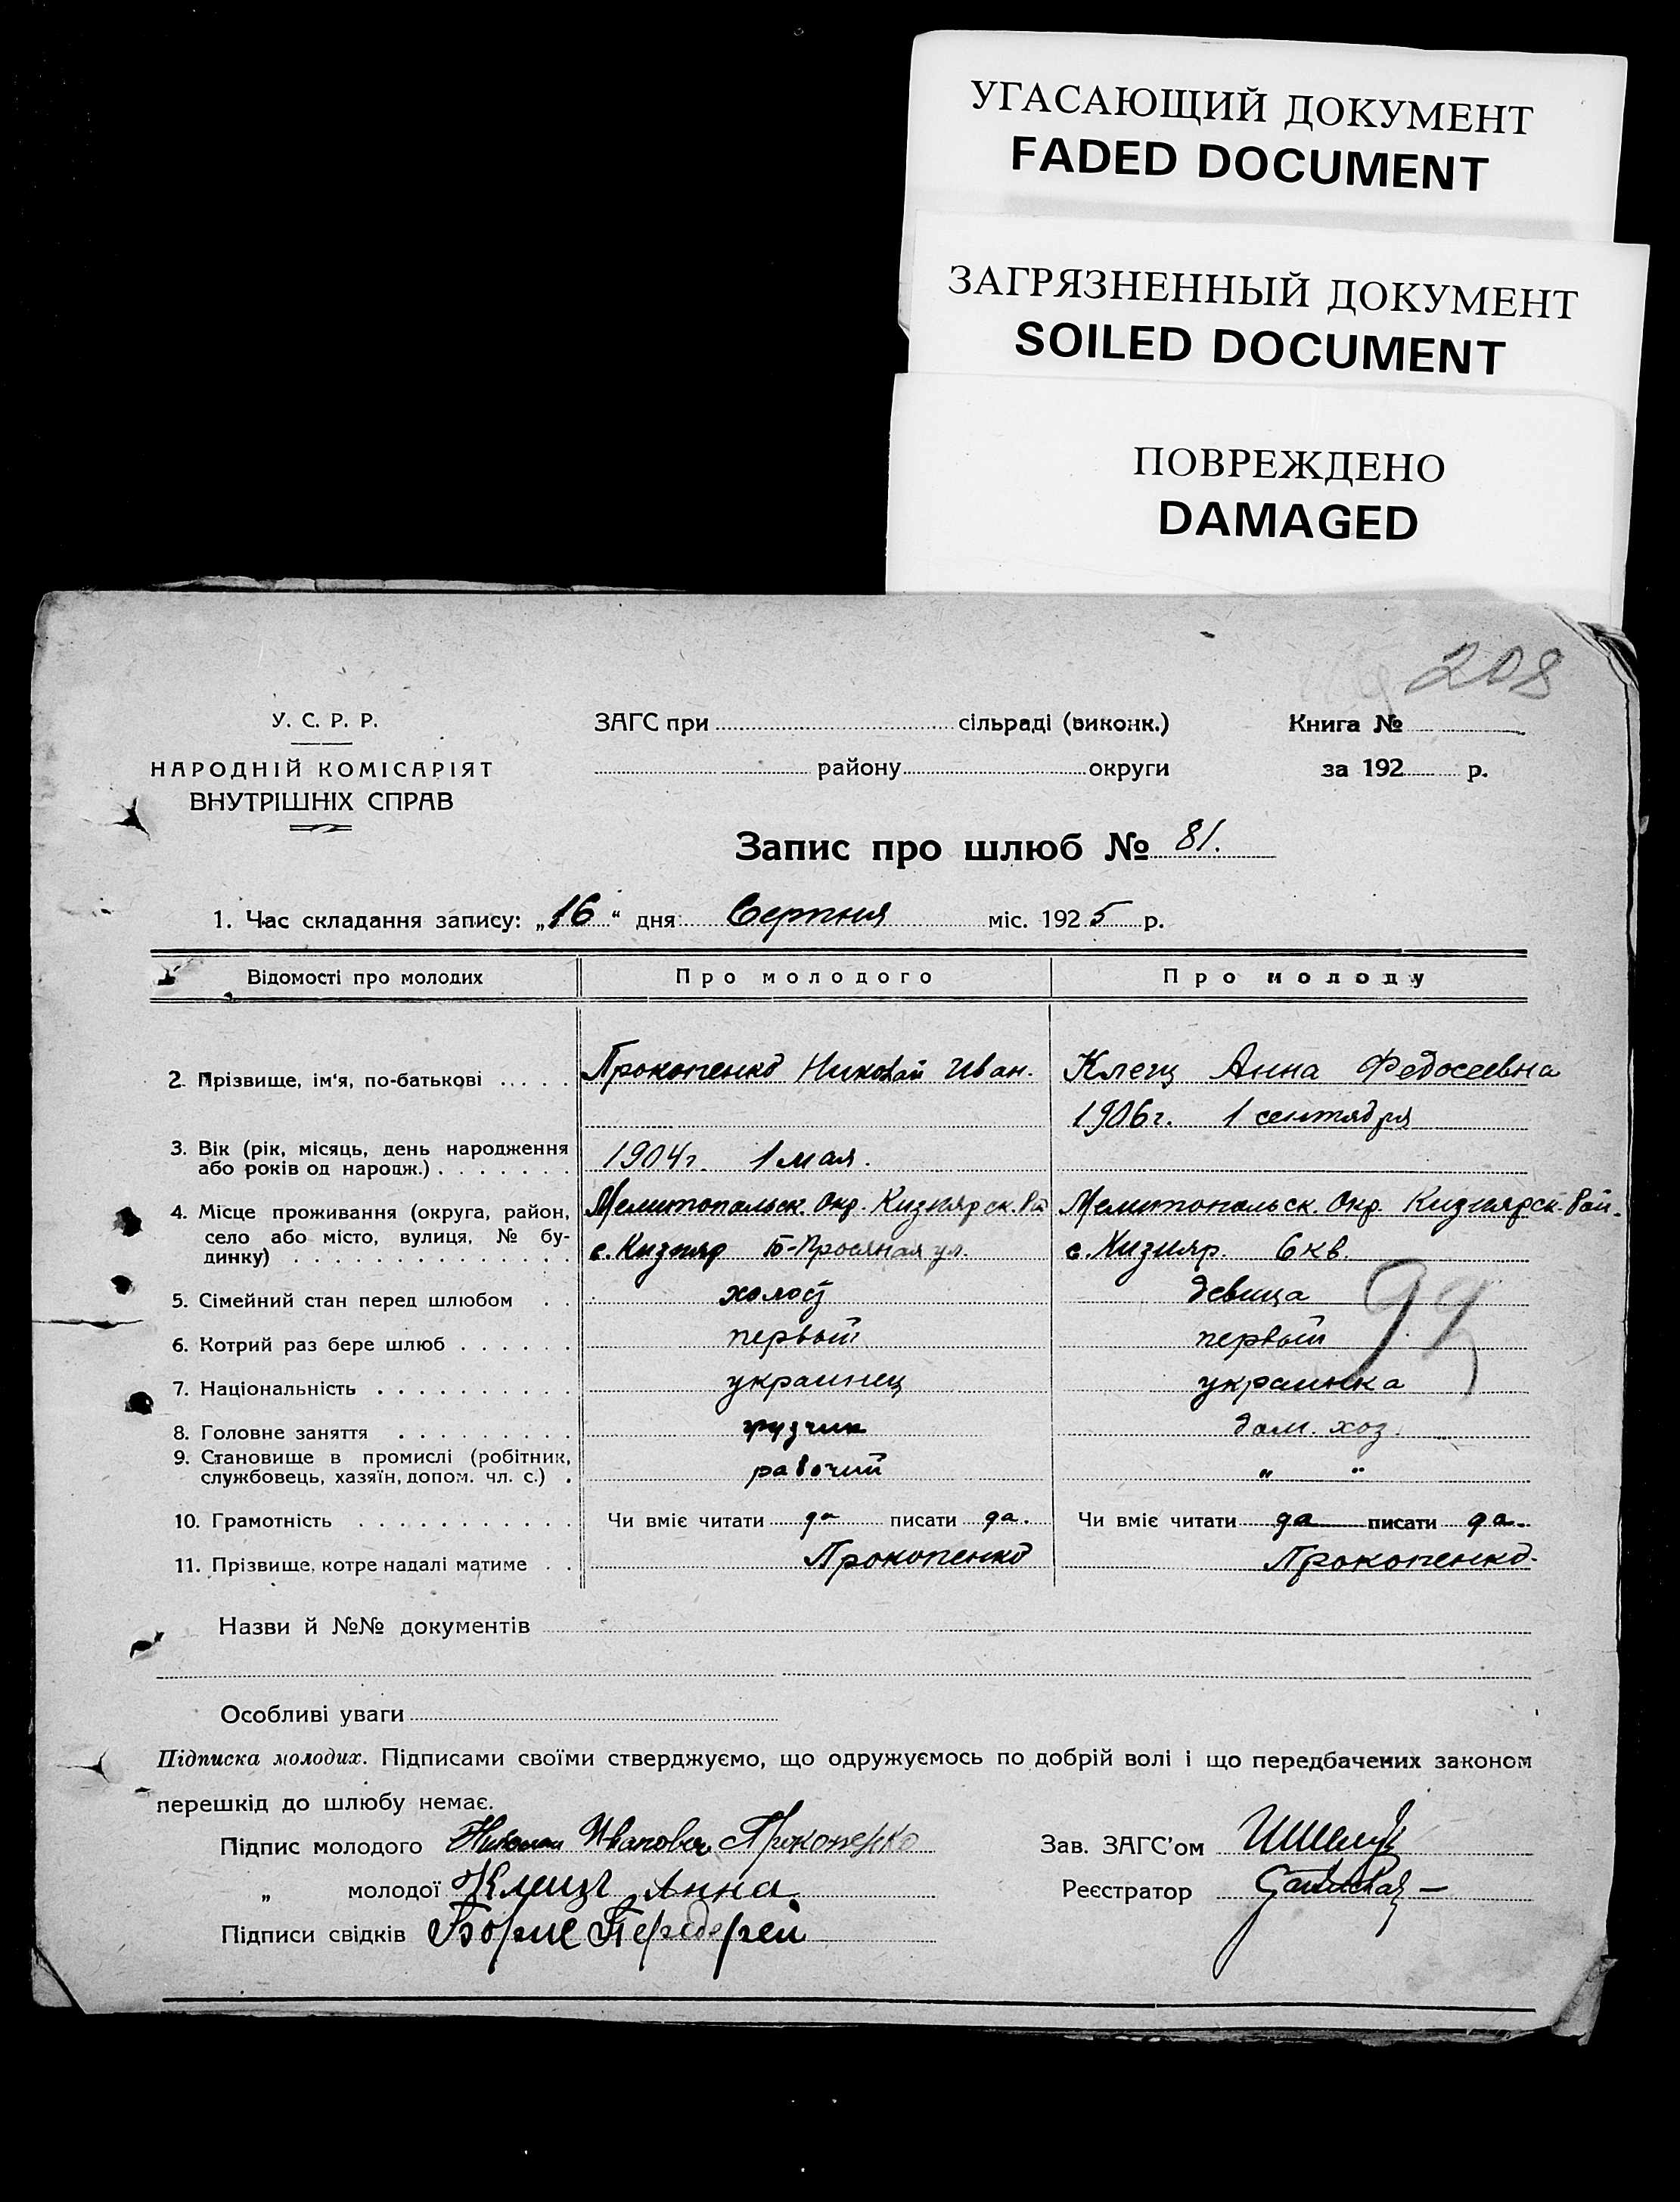 УГАСАЮЩИЙ ДОКУМЕНТ
FADED DOCUMENT
ЗАГРЯЗНЕННЫЙ ДОКУМЕНТ
SOILED DOCUMENT
ПОВРЕЖДЕНО
DAMAGED
208
У. С. Р. Р.
НАРОДНІЙ КОМІСАРІЯТ
ВНУТРІШНІХ СПРАВ
ЗАГС при сільраді (виконк.)
району округи
Книга №
за 192 р.
Запис про шлюб № 81.
1. Час складання запису: „16“ дня Серпня міс. 1925 р.
Відомості про молодих Про молодого Про молоду
2. Прізвище, ім'я, по-батькові Прокопенко Николай Иван. Клещ Анна Федосеевна
1906 г. 1 сентября
3. Вік (рік, місяць, день народження
або років од народж.) 1904 г. 1 мая.
4. Місце проживання (округа, район, Мелитопольск. Окр. Кизиярск. Рай Мелитопольск. Окр. Кизиярск. Рай.
село або місто, вулиця, № бу-
динку) с. Кизияр Б-Просяная ул. с. Кизияр. 6 кв.
5. Сімейний стан перед шлюбом холост девица
99
6. Котрий раз бере шлюб первый первый
7. Національність украинец украинка
8. Головне заняття грузчик дом. хоз.
9. Становище в промислі (робітник,
службовець, хазяїн, допом. чл. с.) рабочий „ „
10. Грамотність Чи вміє читати да писати да. Чи вміє читати да писати да.
11. Прізвище, котре надалі матиме Прокопенко Прокопенко.
Назви й №№ документів
Особливі уваги
Підписка молодих. Підписами своїми стверджуємо, що одружуємось по добрій волі і що передбачених законом
перешкід до шлюбу немає.
Підпис молодого Николай Иванович Прокопенко
Зав. ЗАГС'ом
„ молодої Клещ Анна
Реєстратор
Підписи свідків Борис